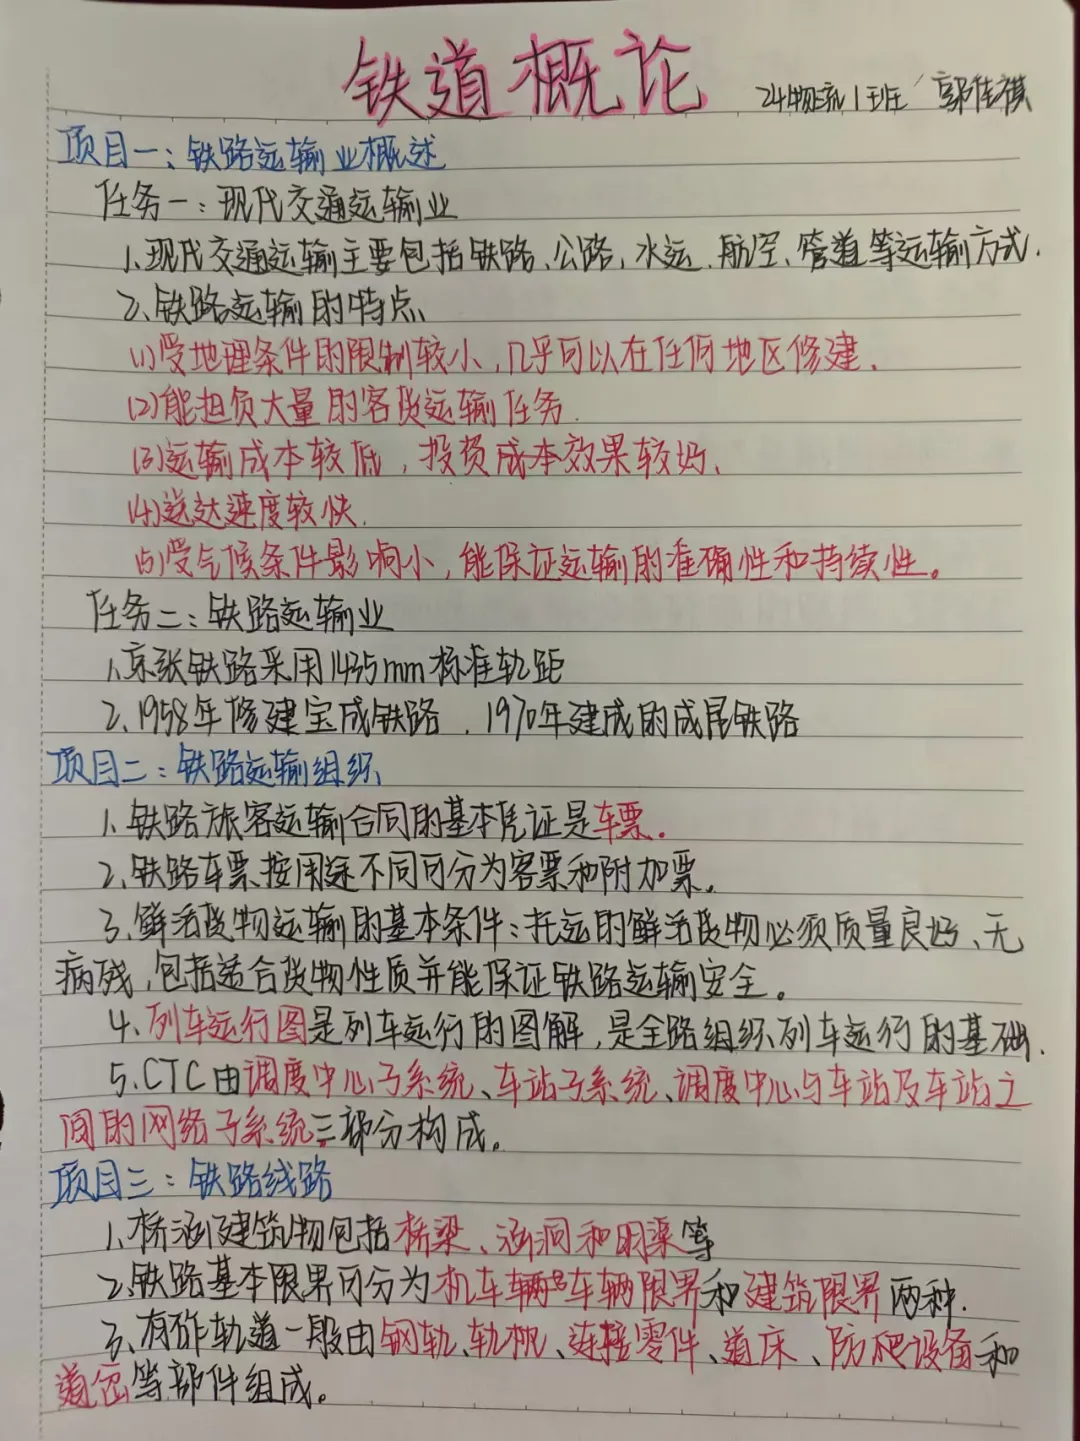 铁道概论
24物流1班 郭佳祺
项目一：铁路运输业概述
任务一：现代交通运输业
1、现代交通运输主要包括铁路、公路、水运、航空、管道等运输方式.
2、铁路运输的特点
(1)受地理条件的限制较小,几乎可以在任何地区修建.
(2)能担负大量的客货运输任务.
(3)运输成本较低,投资成本效果较好、
(4)送达速度较快.
(5)受气候条件影响小,能保证运输的准确性和持续性。
任务二：铁路运输业
1、京张铁路采用1435mm标准轨距
2、1958年修建宝成铁路、1970年建成的成昆铁路
项目二：铁路运输组织
1、铁路旅客运输合同的基本凭证是车票。
2、铁路车票按用途不同可分为客票和附加票。
3、鲜活货物运输的基本条件：托运的鲜活货物必须质量良好、无
病残,包括适合货物性质并能保证铁路运输安全。
4、列车运行图是列车运行的图解,是全路组织列车运行的基础.
5、CTC由调度中心子系统、车站子系统、调度中心与车站及车站之
间的网络子系统三部分构成。
项目三：铁路线路
1、桥涵建筑物包括桥梁、涵洞和明渠等
2、铁路基本限界可分为机车车辆限界和建筑限界两种.
3、有砟轨道一般由钢轨、轨枕、连接零件、道床、防爬设备和
道岔等部件组成。